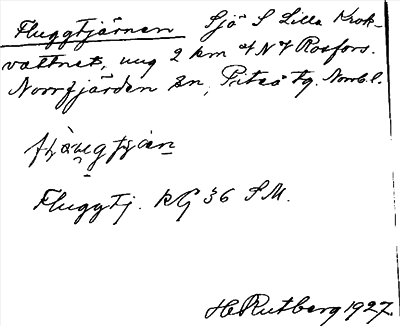 Fluggtjärnen Sjö S Lilla Krok-
vattnet, ung 2 km åt N åt Rosfors.
Norrfjärden sn, Piteå tg. Norrb. l.
Fluggtj. kG 36 SM.
H Rutberg 1927.